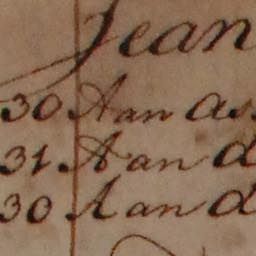 Jean
30 Aan as
31 Aan d
30 Aan d